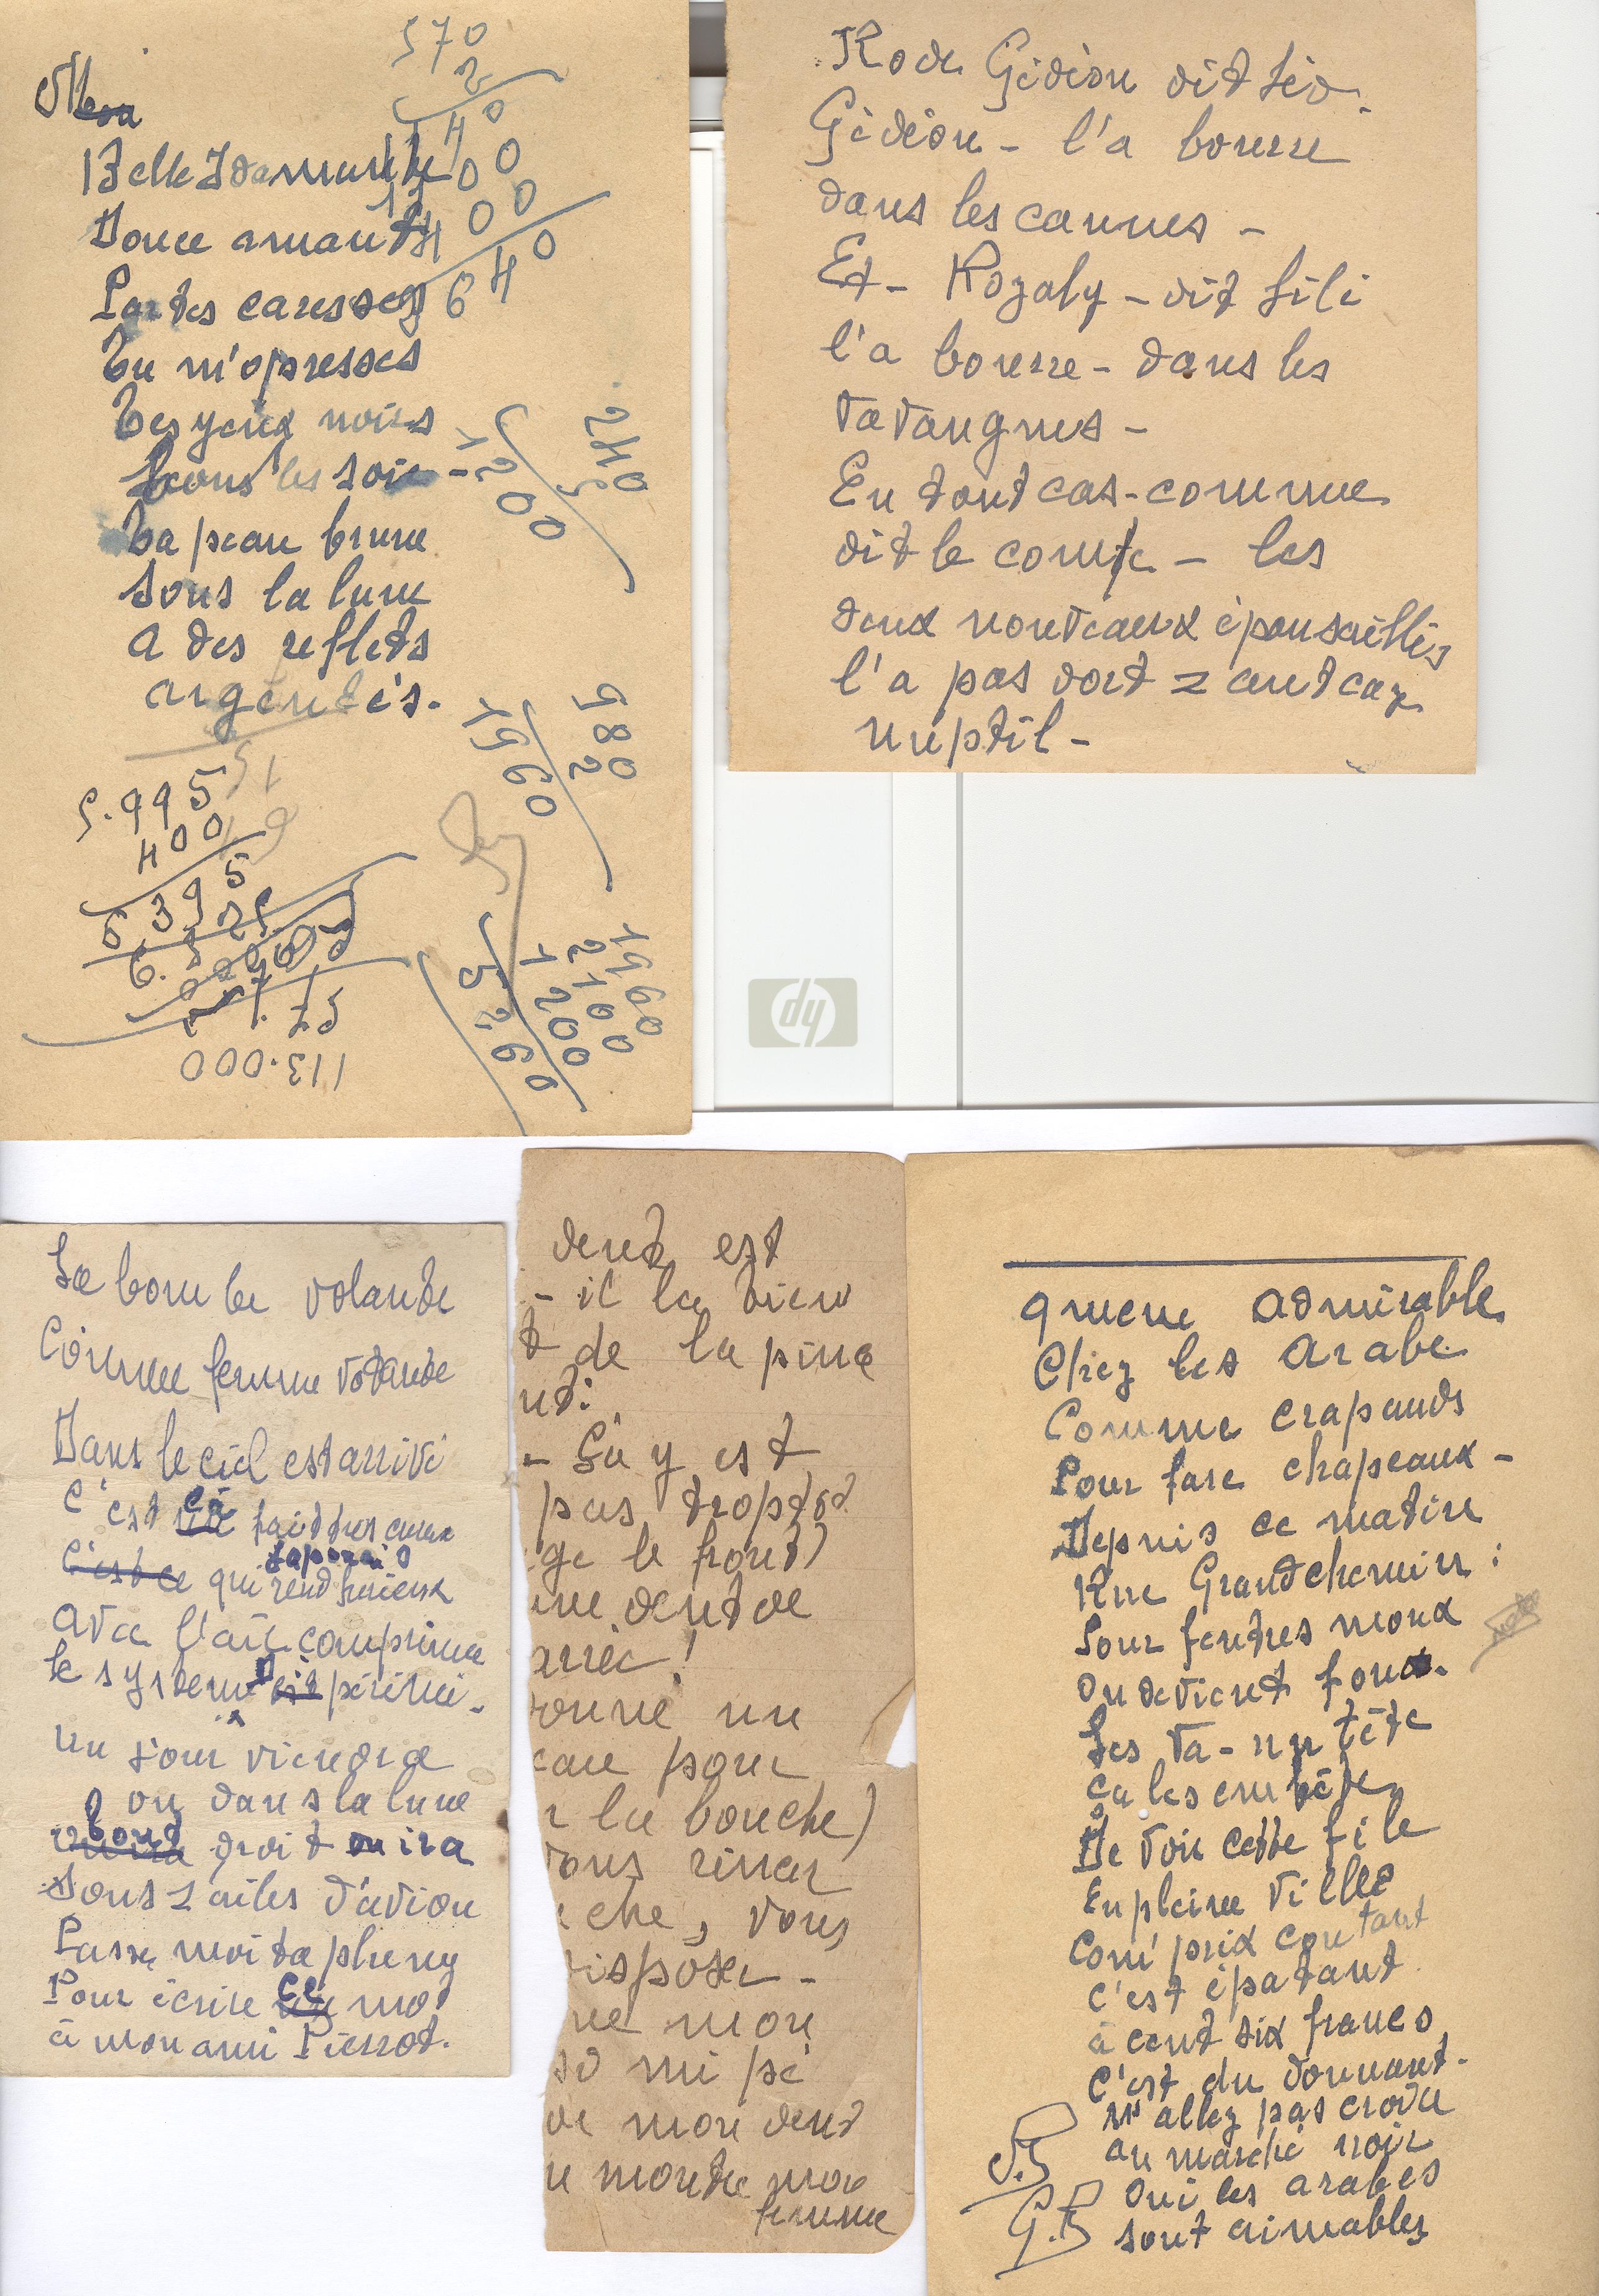 570
2
1140
Belle Idamante
Douce amante
Par tes caresses
Tu m'opresses
Tes yeux noirs
Tous les soirs
Ta peau brune
Sous la lune
A des reflets
argentés.
240
5
1200
980
2
1960
5.995
400
6395
113.000
1960
2100
1200
5260
Gidéon dit tio
Gidéon - l'a bourre
dans les cannes -
Et - Rozaly - dit fifi
l'a bourre - dans les
vavangues -
En tout cas - comme
dit le comte - les
deux nouveaux épousailles
l'a pas dort z'aut caz
nuptil -
La bombe volante
Comme femme votante
Dans le ciel est arrivé
C'est ce fait
c'est ce qui rend furieux
Avec l'air comprimé
le système périmé.
un jour viendra
ou dans la lune
tout droit on ira
Sous z'ailes d'avion
Passe moi ta plume
Pour écrire ce mot
à mon ami Pierrot.
dent est
- il la bien
t de la pince
nt.
- Ça y est
pas trop tôt
ge le front)
une dent de
arrié!
onne un
eau pour
r la bouche)
vous rincer
che, vous
disposer -
ne mon
so mi pé
de mon dent
montre mon
femme
queue admirable
Chez les Arabe
Comme crapauds
Pour fare chapeaux -
Depuis ce matin
Rue Grandchemin :
Pour feutres moux
On devient fou.
Les va-nu tête
ça les embête
De voir cette file
En pleine ville
Com' prix coutant
C'est épatant
à cent six francs
C'est du donnant.
N' allez pas croire
au marché noir
Oui les arabes
sont aimables